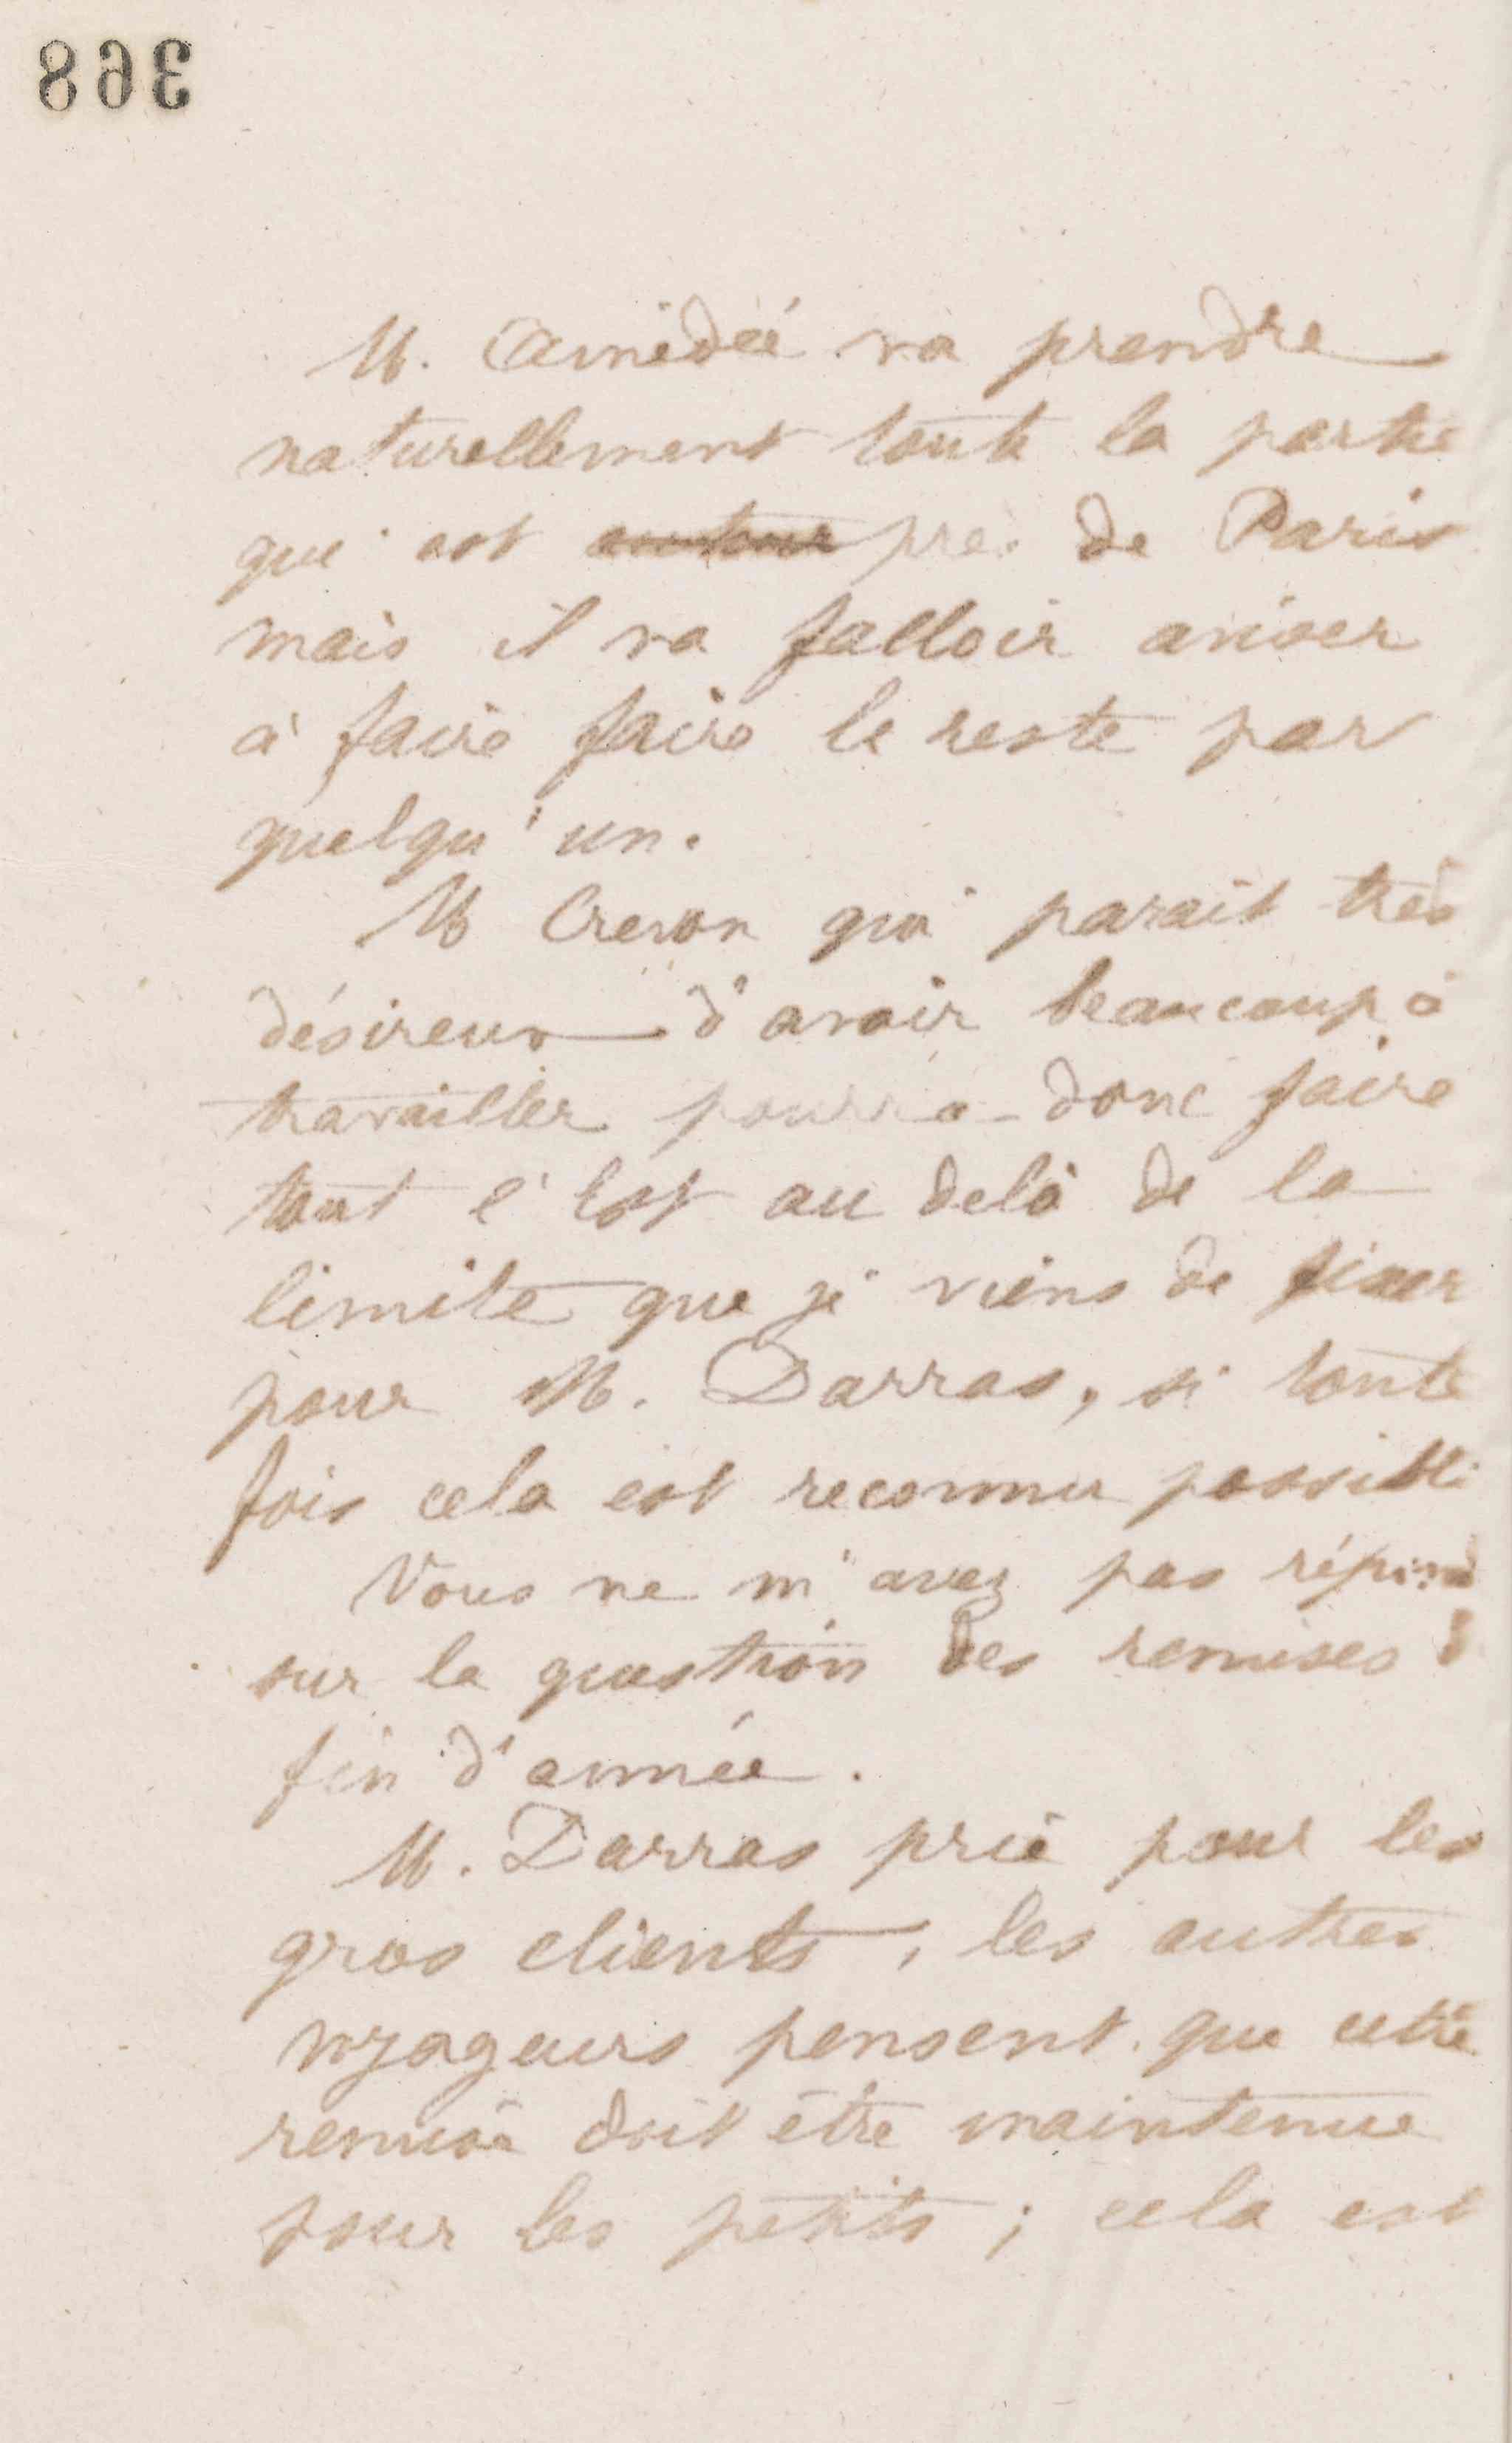 368
M. Amédée va prendre
naturellement toute la partie
qui est autour près de Paris
mais il va falloir aviser
à faire faire le reste par
quelqu'un.
M Creson qui parait très
désireux d'avoir beaucoup à
travailler pourra donc faire
tout l'Est au delà de la
limite que je viens de fixer
pour M. Darras, si toute
fois cela est reconnu possible
Vous ne m'avez pas répond
sur la question des remises
fin d'année.
M. Darras prie pour les
gros clients, les autres
voyageurs pensent que cette
remise doit être maintenue
pour les petits ; cela est